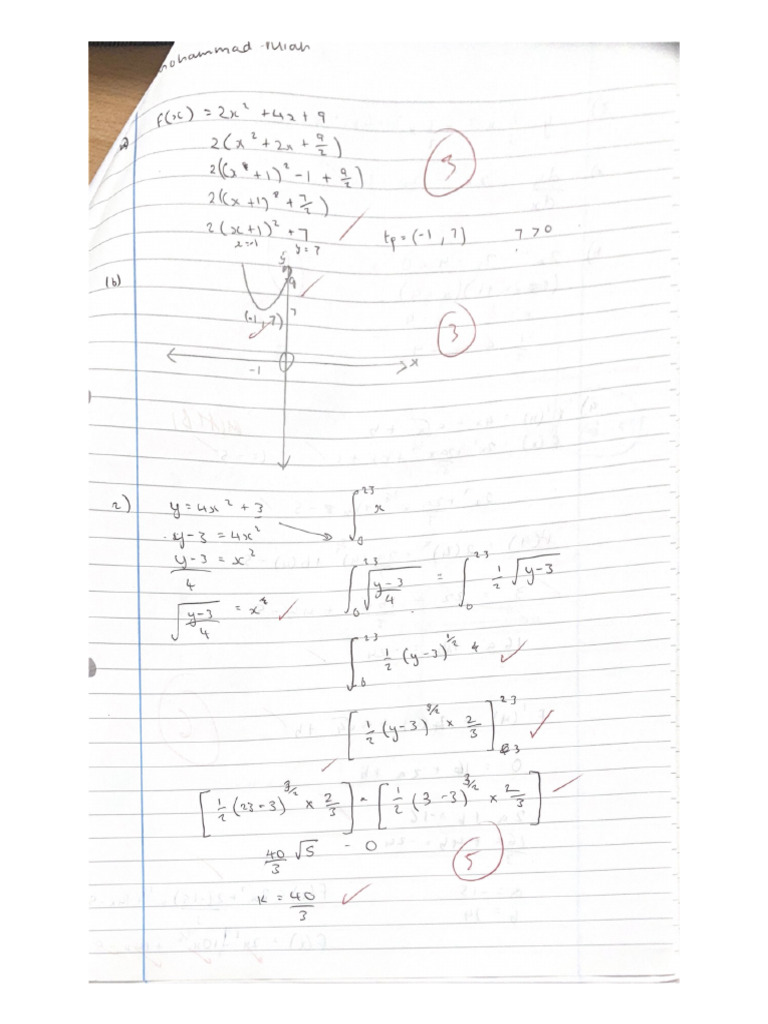 mohammad Miah
a) f(x) = 2x² + 4x + 9
2(x² + 2x + 9/2)
2((x + 1)² - 1 + 9/2)
3
2((x + 1)² + 7/2)
2(x + 1)² + 7 tp = (-1, 7) 7 > 0
x=-1 y=7
(b)
9
(-1, 7) 7
3
-1 x
2) y = 4x² + 3 ∫₀²³ x
y - 3 = 4x²
(y - 3)/4 = x²
∫₀²³ √((y - 3)/4) = ∫₀²³ 1/2 √(y - 3)
√((y - 3)/4) = x
∫₀²³ 1/2 (y - 3)^(1/2)
[1/2 (y - 3)^(3/2) × 2/3]₃²³
[1/2 (23 - 3)^(3/2) × 2/3] - [1/2 (3 - 3)^(3/2) × 2/3]
40/3 √5 - 0
5
K = 40/3